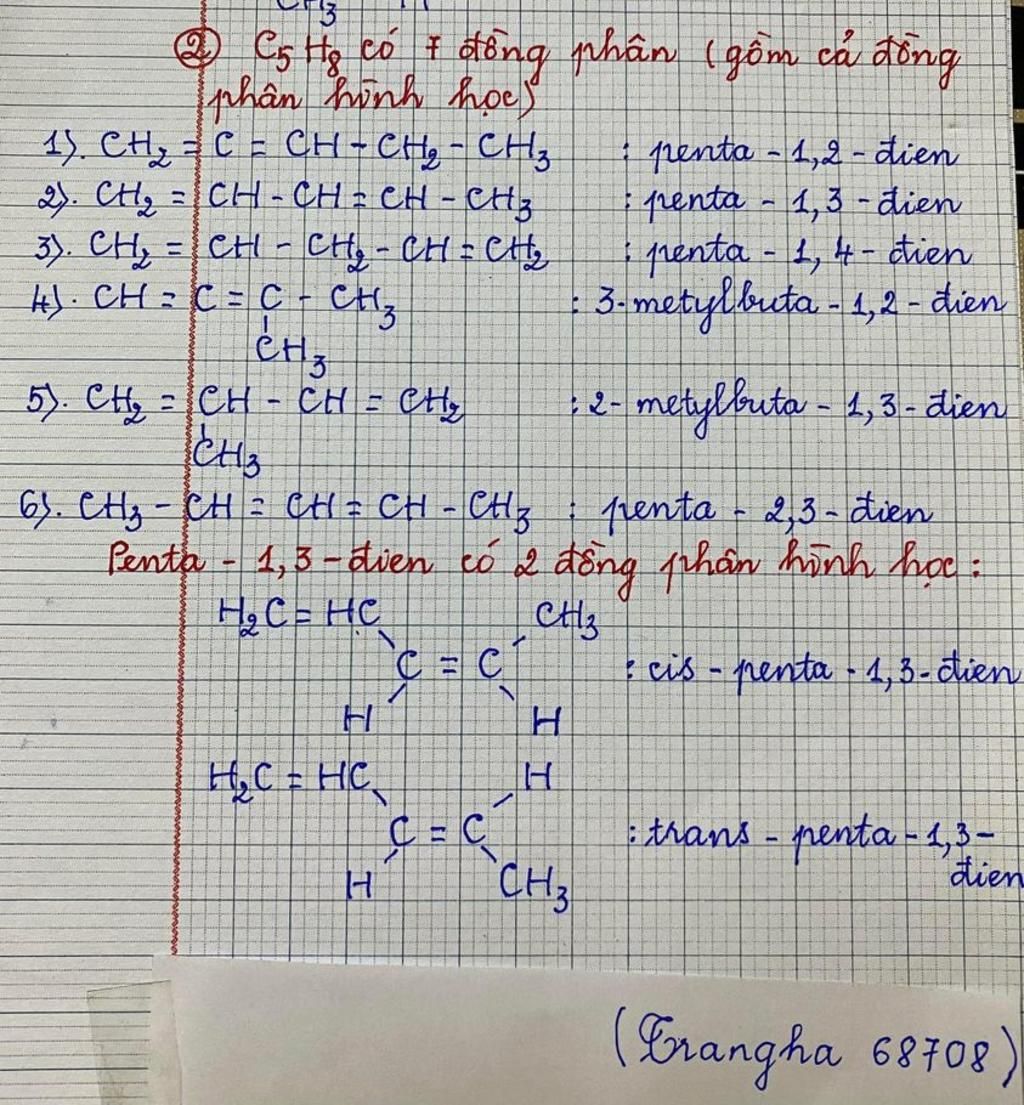 CH3
② C5H8 có 7 đồng phân (gồm cả đồng
phân hình học)
1). CH2 = C = CH - CH2 - CH3 : penta - 1,2 - đien
2). CH2 = CH - CH = CH - CH3 : penta - 1,3 - đien
3). CH2 = CH - CH2 - CH = CH2 : penta - 1,4 - đien
4). CH = C = C - CH3 : 3-metylbuta - 1,2 - đien
CH3
5). CH2 = CH - CH = CH2 : 2- metylbuta - 1,3 - đien
CH3
6). CH3 - CH = CH = CH - CH3 : penta - 2,3 - đien
Penta - 1,3 - đien có 2 đồng phân hình học :
H2C = HC CH3
C = C : cis - penta - 1,3 - đien
H H
H2C = HC H
C = C : trans - penta - 1,3 -
đien
H CH3
(Trangha 68708)